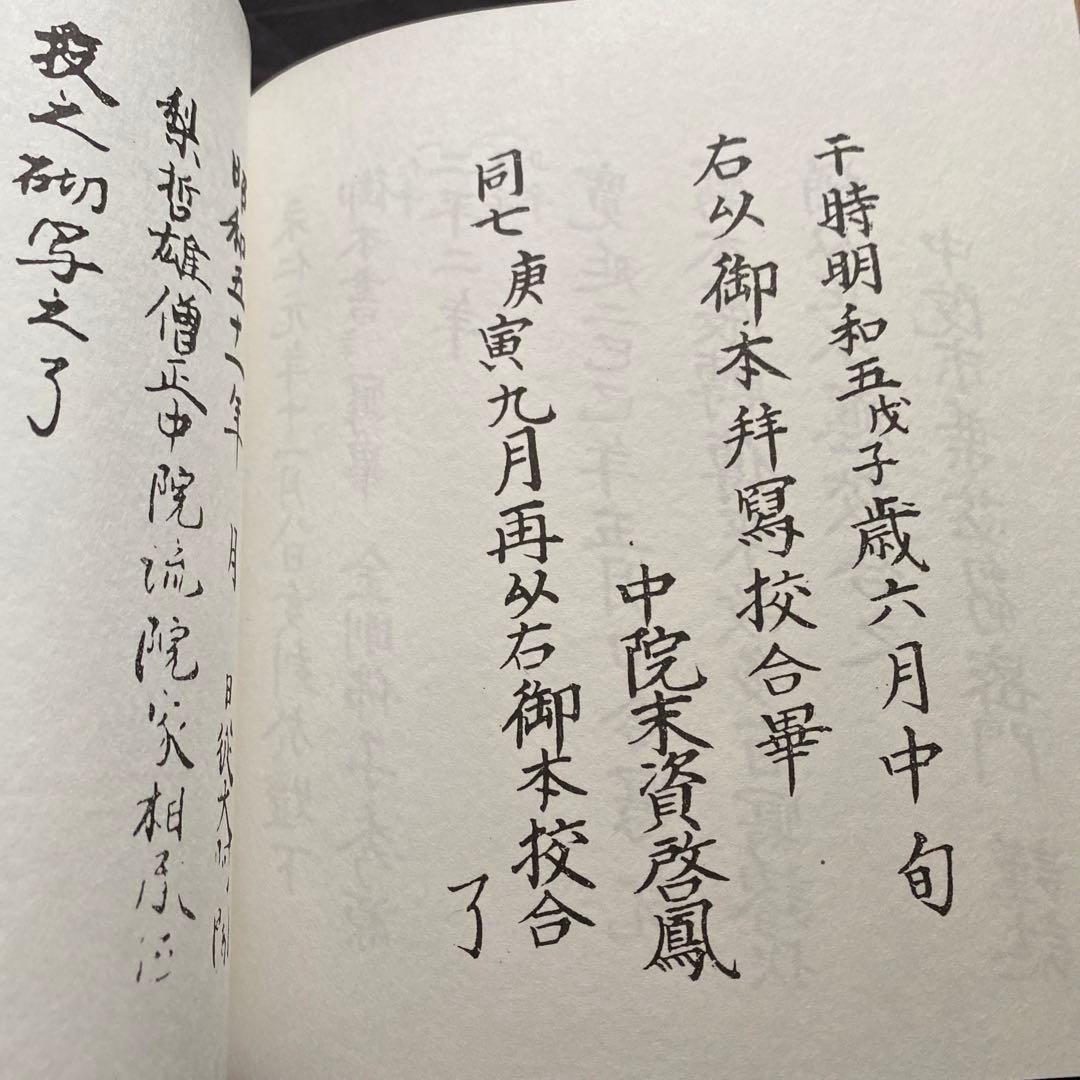 干時明和五戊子歳六月中旬
右以御本拜寫挍合畢
中院末資啓鳳
同七庚寅九月再以右御本挍合
了
明和五十一年 月 日 大
梨哲雄僧正中院流院家相承
授之砌写之了